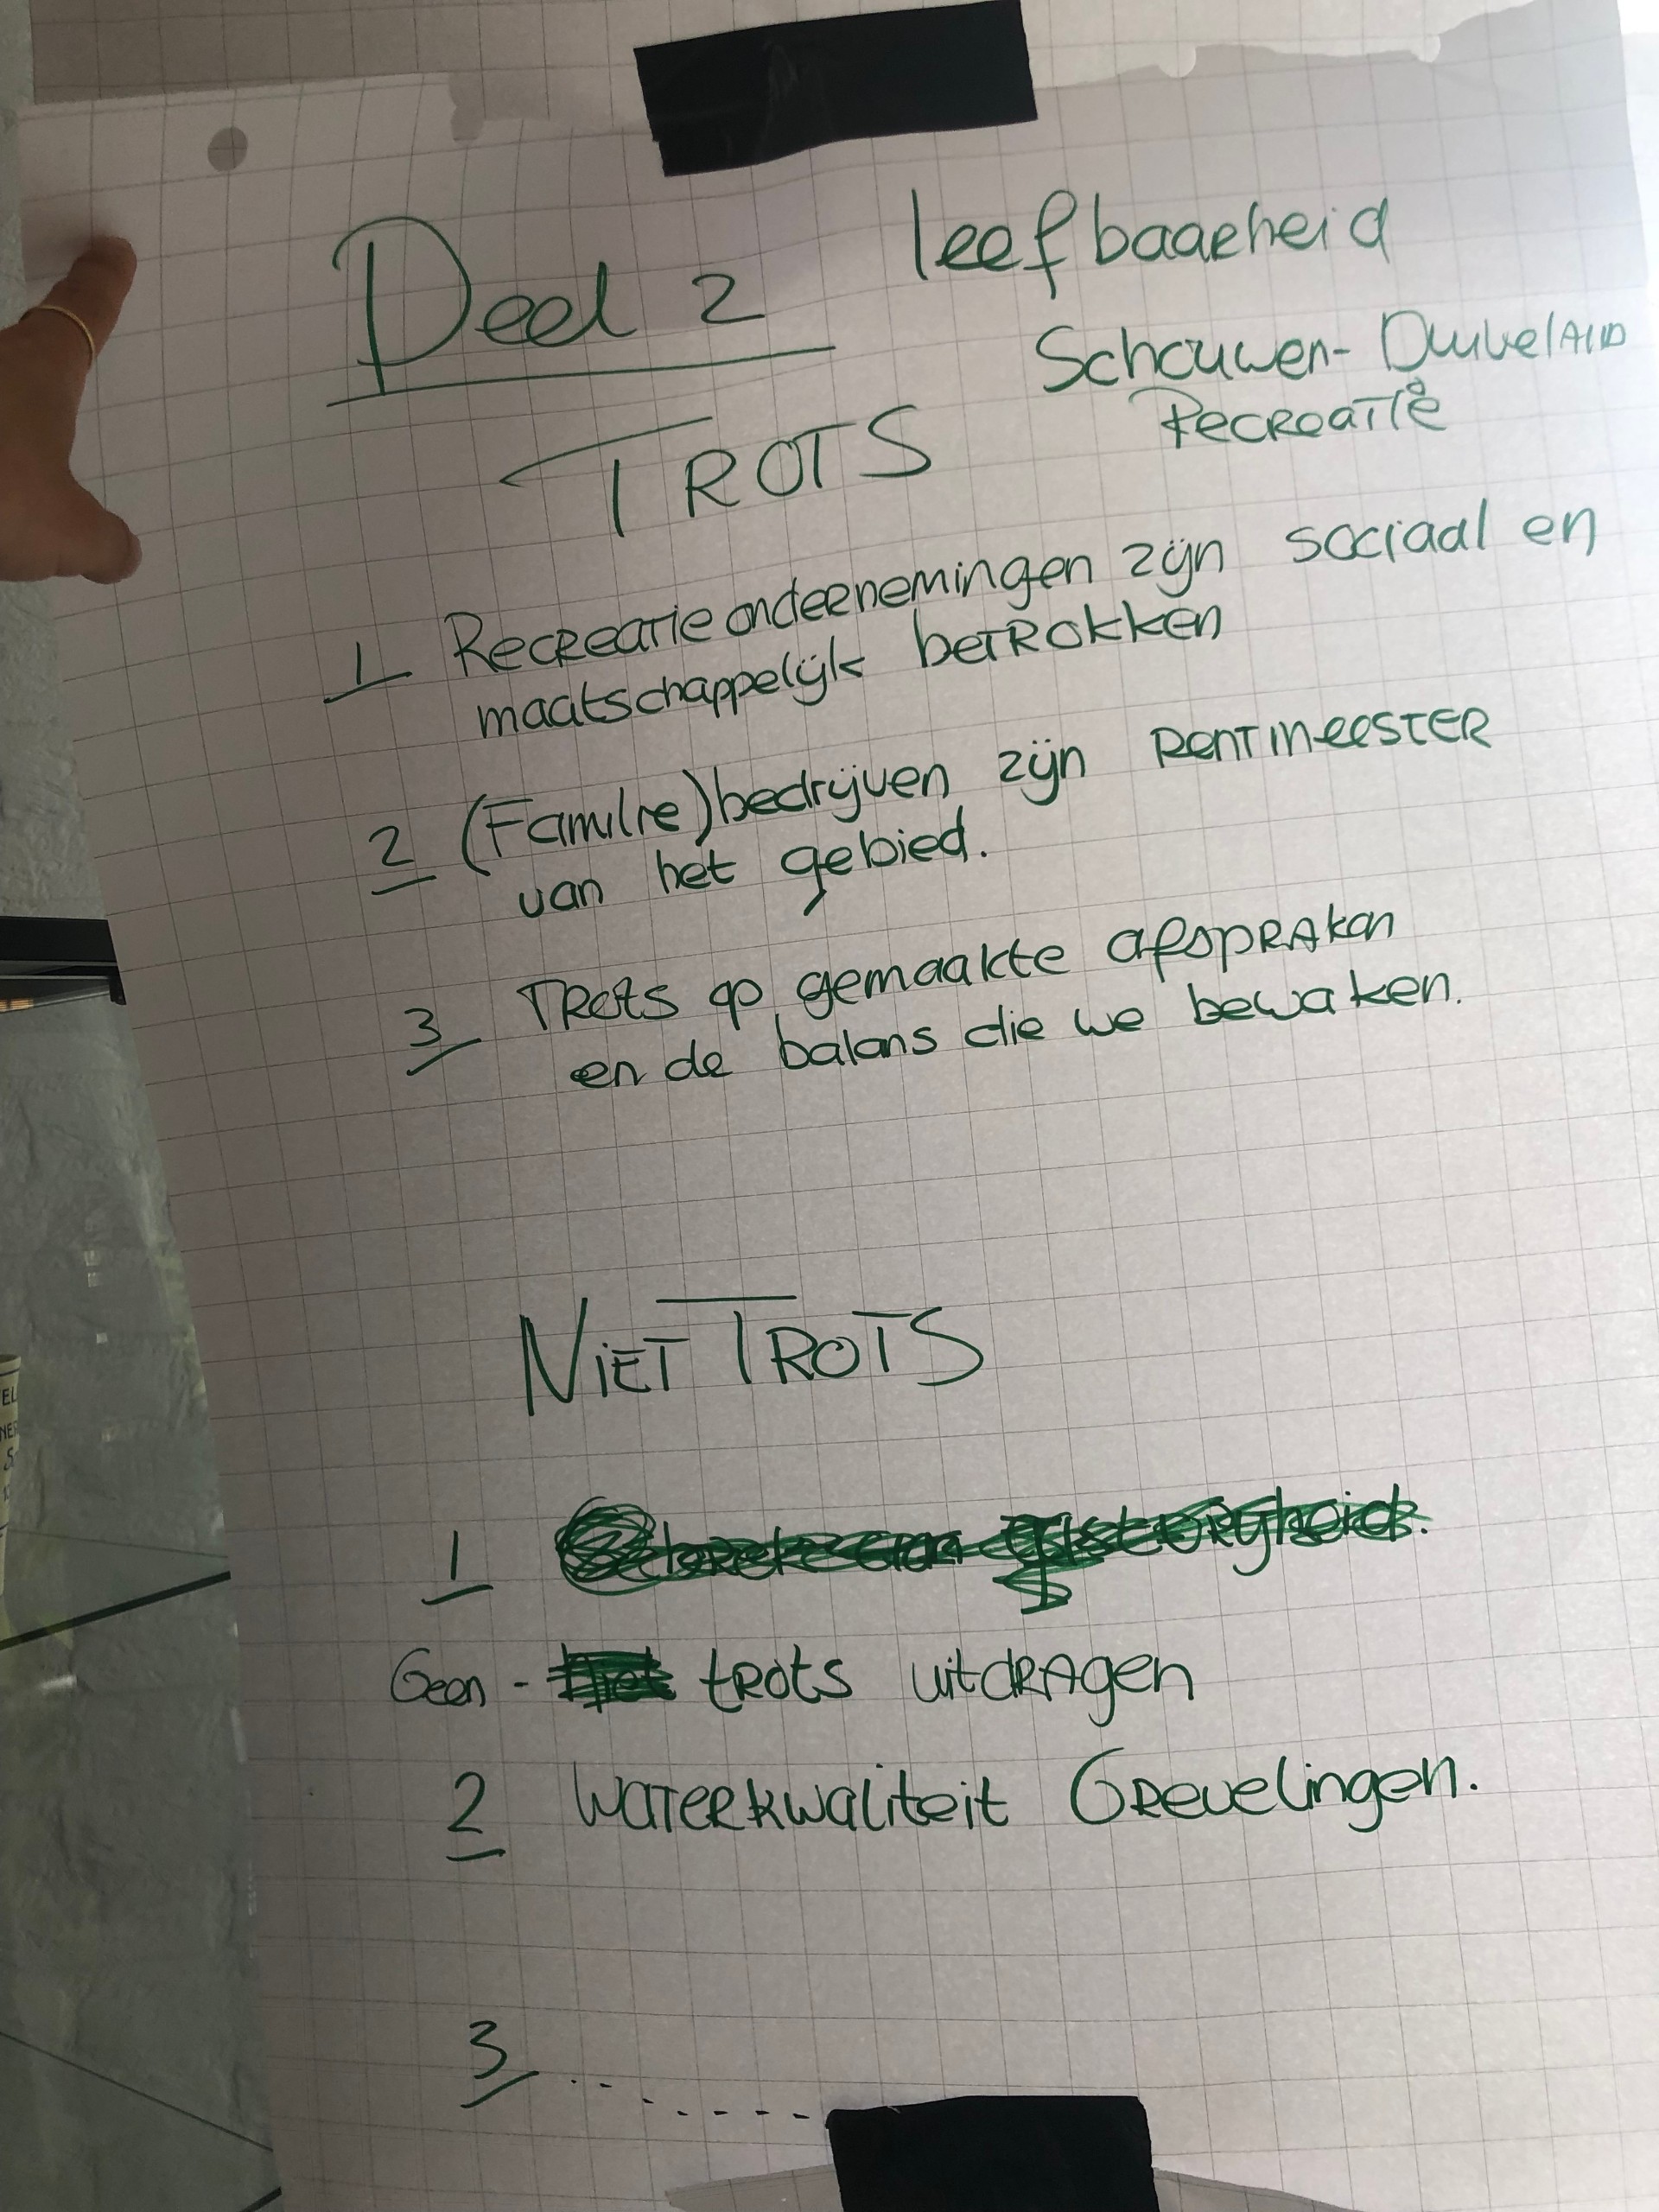 Deel 2
leefbaarheid
Schouwen-Duiveland
Recreatie
TROTS
1 Recreatie ondernemingen zijn sociaal en
maatschappelijk betrokken
2 (Familie)bedrijven zijn rentmeester
van het gebied.
3 Trots op gemaakte afspraken
en de balans die we bewaken.
NIET TROTS
1
Geen - trots uitdragen
2 Waterkwaliteit Grevelingen.
3 ........